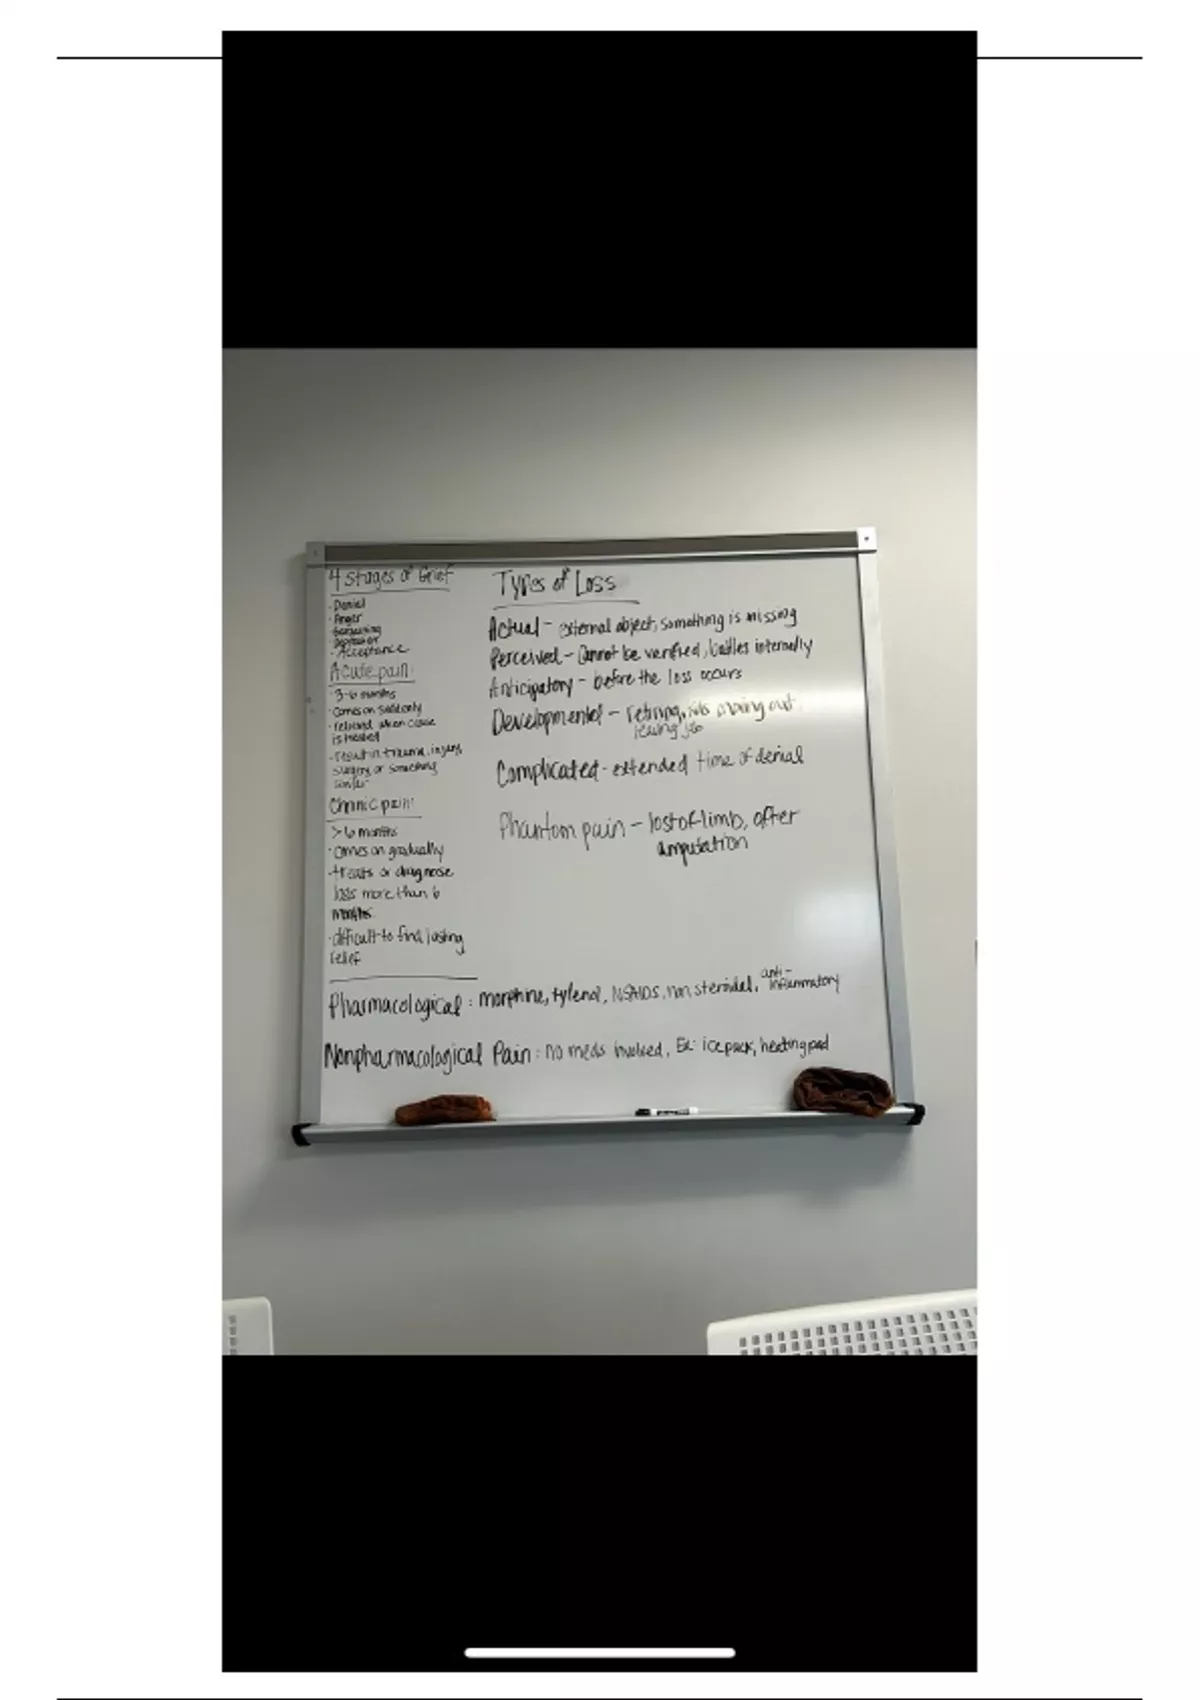 4 Stages of Grief
· Denial
· Anger
· Bargaining
· Depression
· Acceptance
Acute pain:
· 3-6 months
· comes on suddenly
· relieved when cause
is treated
· result in trauma, injury,
surgery or something
similar
Chronic pain:
> 6 months
· comes on gradually
· treats or diagnose
lasts more than 6
months.
· difficult to find lasting
relief
Types of Loss
Actual - external object, something is missing
Perceived - Cannot be verified, internally
Anticipatory - before the loss occurs
Developmental - retiring, kids moving out,
leaving job
Complicated - extended time of denial
Phantom pain - lost of limb, after
amputation
Pharmacological : morphine, tylenol, NSAIDS, non steroidal, anti-
inflammatory
Nonpharmacological Pain : no meds involved, Ex: ice pack, heating pad